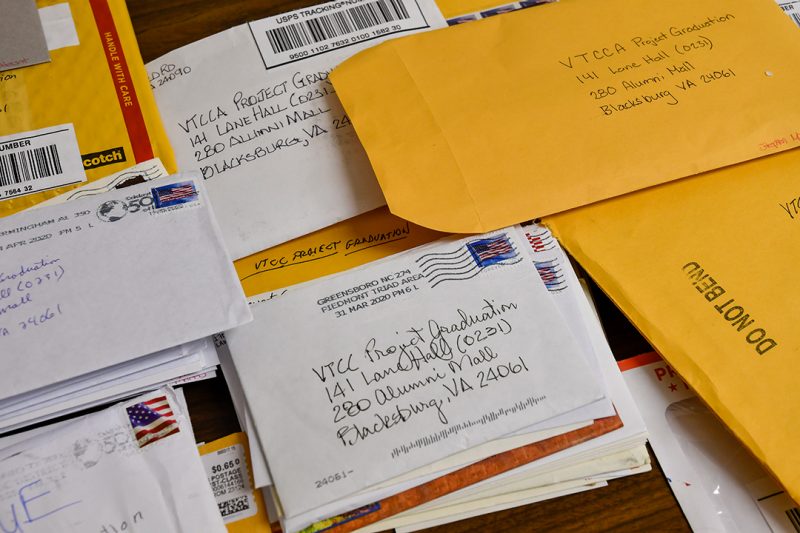 HANDLE WITH CARE
USPS TRACKING NUMBER
9500 1102 7632 0100 1582 30
VTCCA PROJECT GRADUATION
141 LANE HALL (0231)
280 ALLUMNI MALL
BLACKSBURG, VA 24
VTCCA Project Graduation
141 Lane Hall (0231)
280 Alumni Mall
Blacksburg VA 24061
UMBER
7564 32
Scotch
RMINGHAM AL 350
APR 2020 PM 5 L
50
Graduation
ll (0231)
Mall
VA 24061
VTCC PROJECT GRADUATION
GREENSBORO NC 274
PIEDMONT TRIAD AREA
31 MAR 2020 PM 6 L
VTCC Project Graduation
141 Lane Hall (0231)
280 Alumni Mall
Blacksburg, VA 24061
24061-
DO NOT BEND
VT
PR
$0.65
POSTAGE
UE